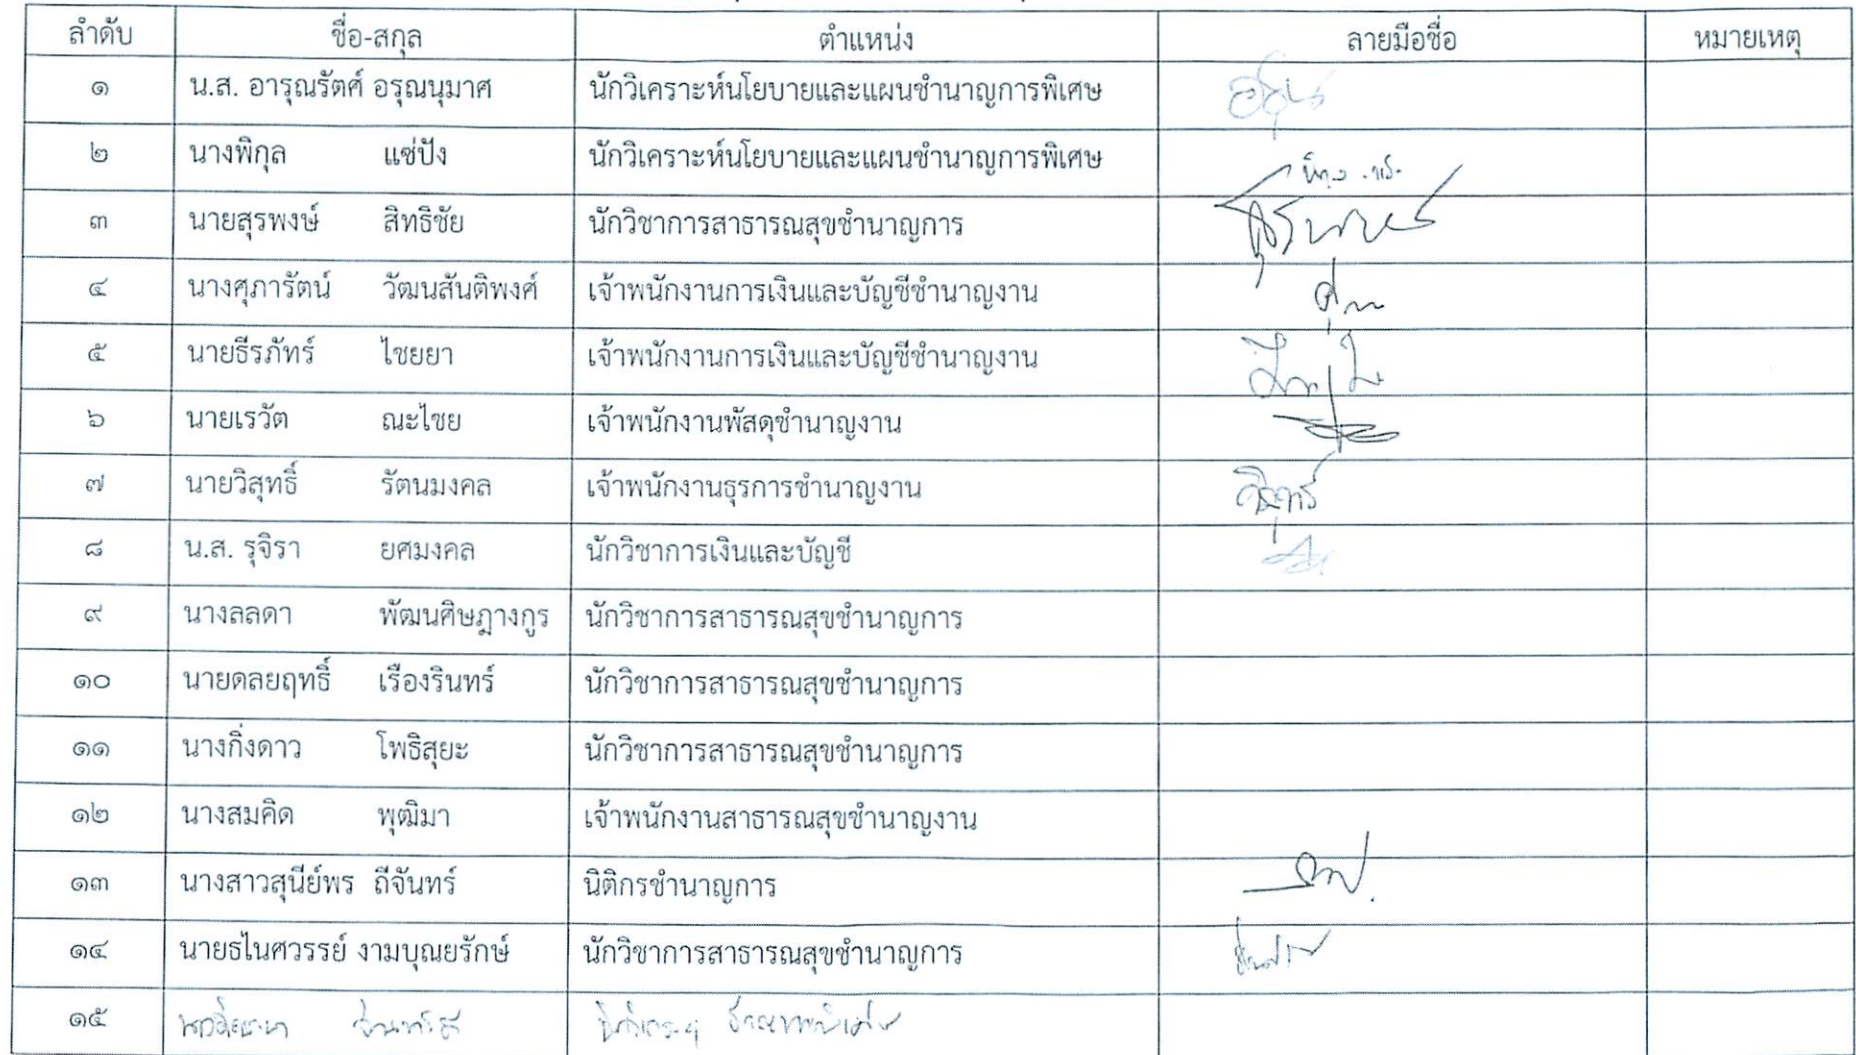 ลำดับ ชื่อ-สกุล ตำแหน่ง ลายมือชื่อ หมายเหตุ
๑ น.ส. อารุณรัตศ์ อรุณนุมาศ นักวิเคราะห์นโยบายและแผนชำนาญการพิเศษ
๒ นางพิกุล แซ่ปัง นักวิเคราะห์นโยบายและแผนชำนาญการพิเศษ
๓ นายสุรพงษ์ สิทธิชัย นักวิชาการสาธารณสุขชำนาญการ
๔ นางศุภารัตน์ วัฒนสันติพงศ์ เจ้าพนักงานการเงินและบัญชีชำนาญงาน
๕ นายธีรภัทร์ ไชยยา เจ้าพนักงานการเงินและบัญชีชำนาญงาน
๖ นายเรวัต ณะไชย เจ้าพนักงานพัสดุชำนาญงาน
๗ นายวิสุทธิ์ รัตนมงคล เจ้าพนักงานธุรการชำนาญงาน
๘ น.ส. รุจิรา ยศมงคล นักวิชาการเงินและบัญชี
๙ นางลลดา พัฒนศิษฎางกูร นักวิชาการสาธารณสุขชำนาญการ
๑๐ นายดลยฤทธิ์ เรืองรินทร์ นักวิชาการสาธารณสุขชำนาญการ
๑๑ นางกิ่งดาว โพธิสุยะ นักวิชาการสาธารณสุขชำนาญการ
๑๒ นางสมคิด พุฒิมา เจ้าพนักงานสาธารณสุขชำนาญงาน
๑๓ นางสาวสุนีย์พร ถีจันทร์ นิติกรชำนาญการ
๑๔ นายธไนศวรรย์ งามบุณยรักษ์ นักวิชาการสาธารณสุขชำนาญการ
๑๕